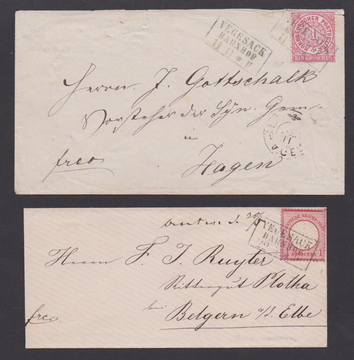 VEGESACK
BAHNHOF
Herrn J. Gottschalk
Vorsteher der Syn. Gem.
u
Hagen
freo
VEGESACK
BAHNHOF
Herrn F. J. Ruyter
Rittergut Plotha
bei
Belgern a/d Elbe
freo